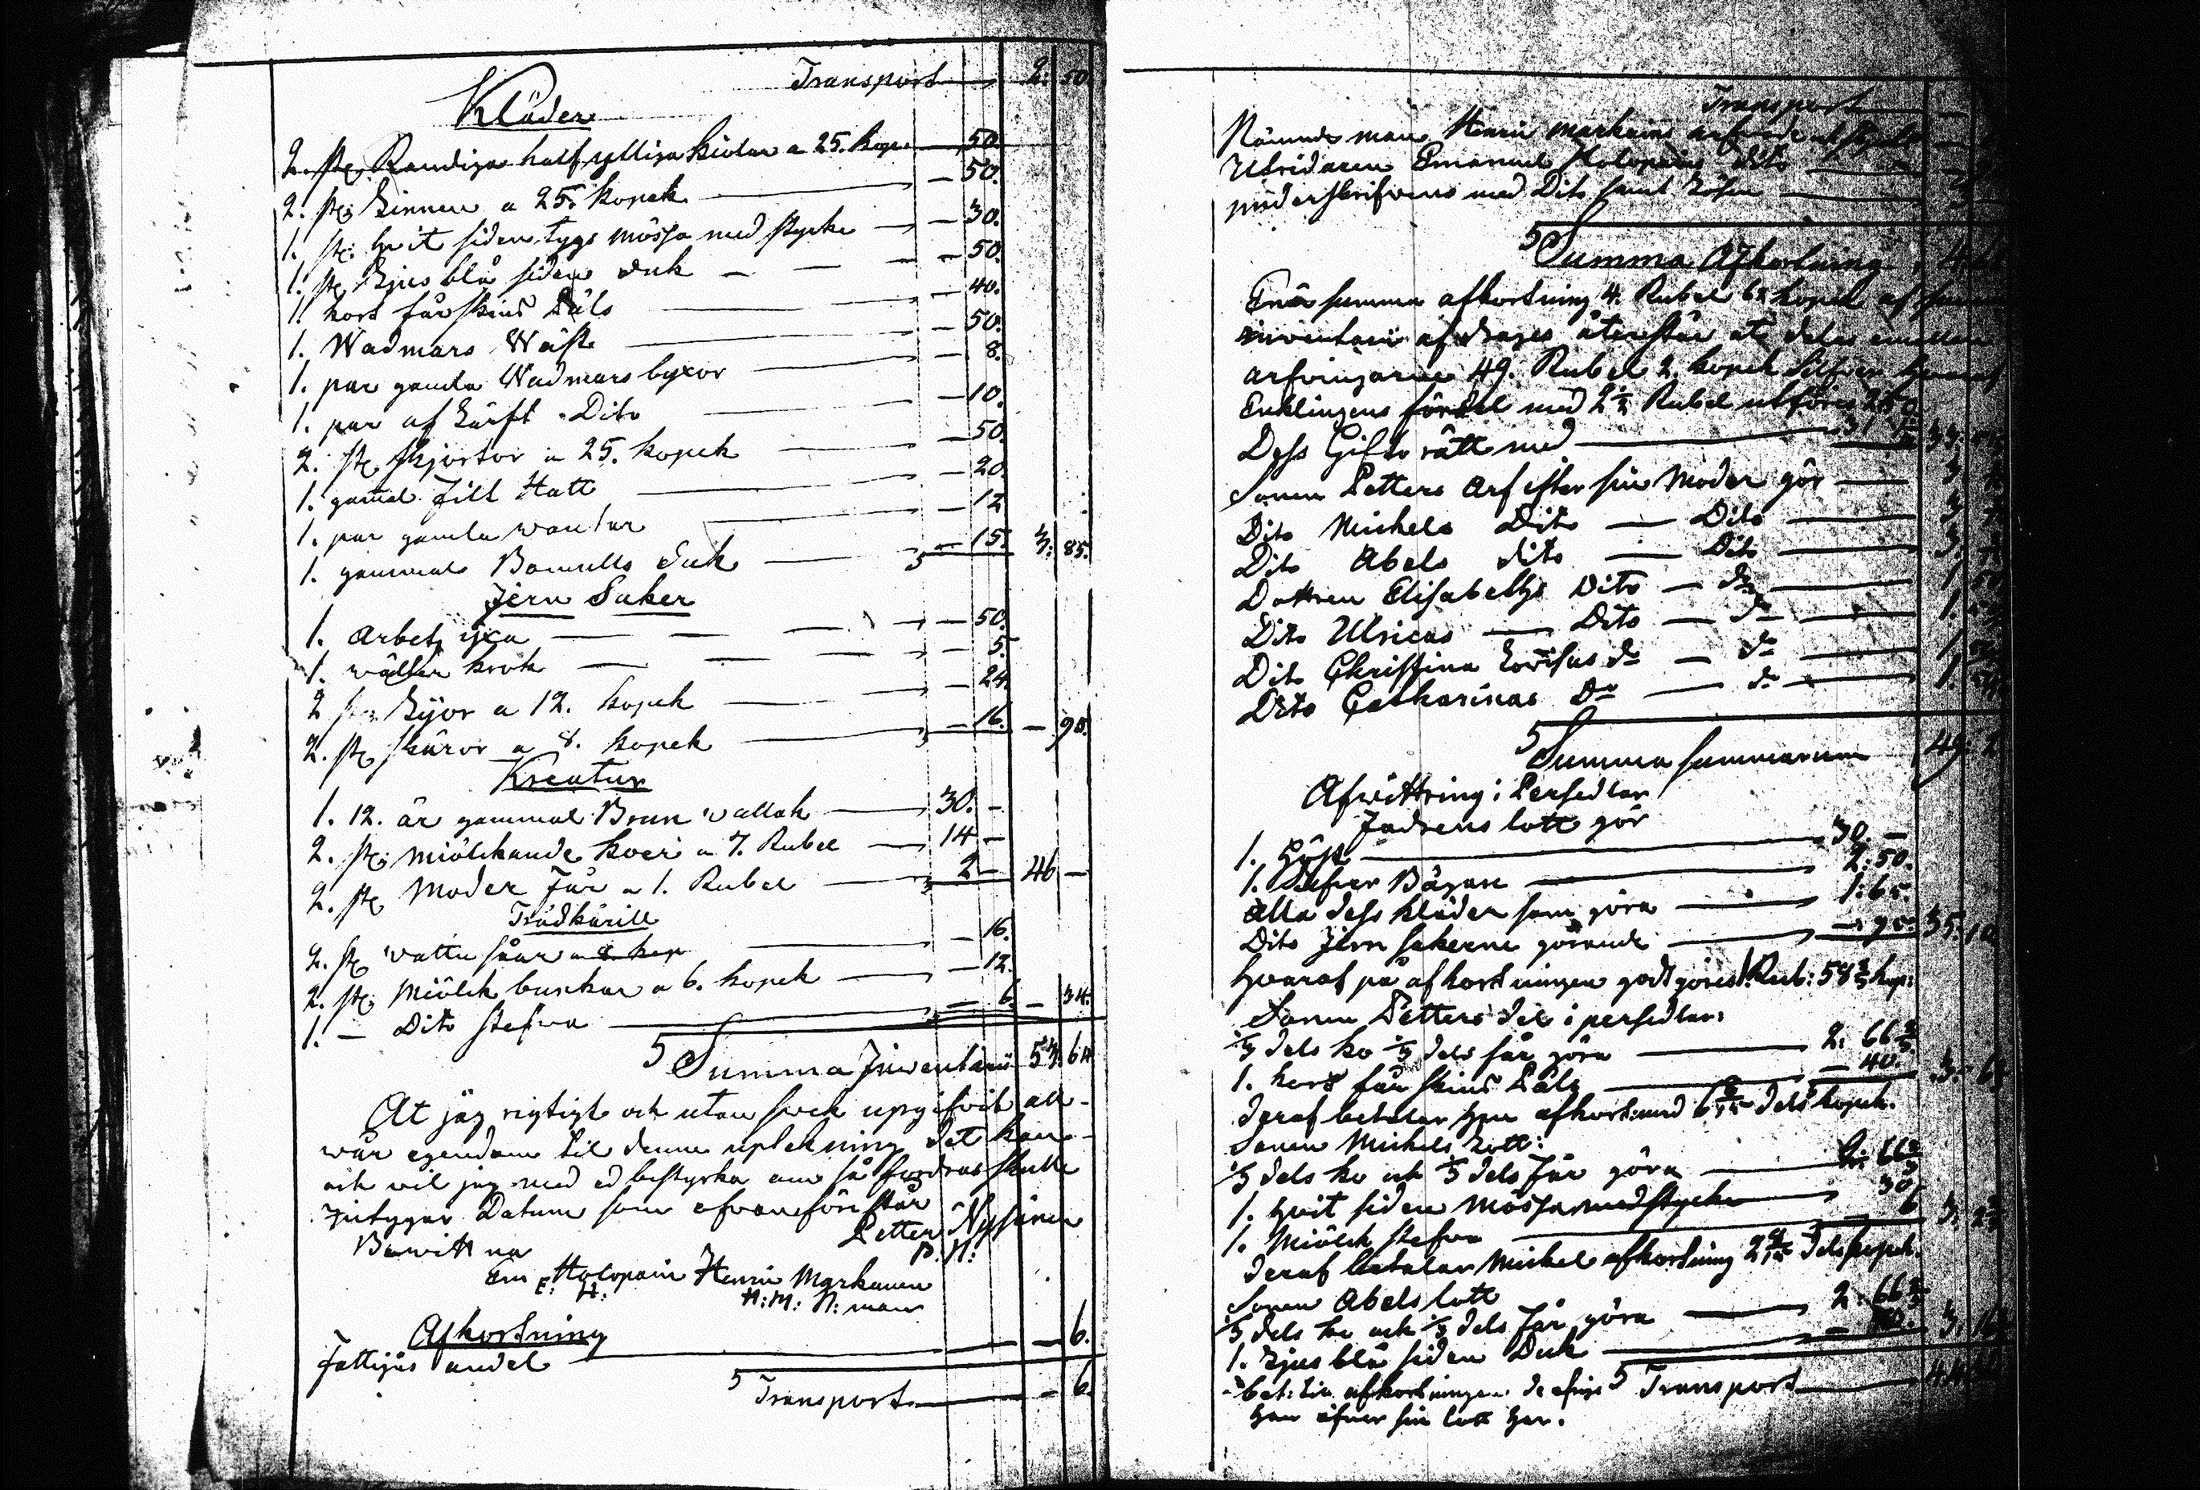 Transport — 2: 50.
Kläder
2. st. Randiga halfylliga kiolar a 25. kop. — 50.
2. st. Linnen a 25. kopek — 50.
1. st. hvit siden tygs mössa med stycke — 30.
1. st. Ljus blå siden duk — 50.
1. kort fårskins Päls — 40.
1. Wadmars Wäst — 50.
1. par gamla Wadmars byxor — 8.
1. par af Lärft Dito — 10.
2. st. skjortor a 25. kopek — 50.
1. gamal Filt Hatt — 20.
1. par gamla wantar — 12
1. gammal Bomulls duk — 15. 3: 85.
Jern Saker
1. Arbets yxa — 50.
1. krok — 5.
2 st. Lijor a 12. kopek — 24.
2. st. skäror a 8. kopek — 16. — 95.
Kreatur
1. 12. år gammal Brun wallak — 30. —
2. st. miölckande koer a 7. Rubel — 14 —
2. st. Moder Får a 1. Rubel — 2 — 46 —
Trädkärill
2. st. wattu såar a 8 kop — 16.
2. st. Miölck bunkar a 6. kopek — 12.
1. — Dito stefwa — 6. — 34.
Summa Inventarii 53. 64
At jag rigtigt och utan swek upgifvit all
wår egendom til denna uptekning det kan
och wil jag med ed bestyrka om så fordras skulle
intygar Datum som ofvanföre står
Petter Nyssönen
P. N:
Bewittna
Em Holopain Henric Markanen
E: H: H: M: N: man
Afkortning
Fattigas andel — 6.
Transport — 6.
Transport
Nämnde man Henric Markains arfvode
Utridaren Emanuel Holopains dito
underskrifvens med Dito samt Lösen
Summa Afkortning 4
När summa afkortning 4. Rubel 62 kopek af
inventarii afdrages återstår at delas emellan
arfvingarne 49. Rubel 2. kopek Silfver hvaraf
Enklingens fördel med 2½ Rubel utföres
Dess Gifto rätt med — 33:
Sonen Petters Arf efter sin Moder gör — 3
Dito Mickels Dito — Dito — 3
Dito Abels dito — Dito — 3.
Dottren Elisabeths Dito — do — 1
Dito Ulricas — Dito — do — 1.
Dito Christina Lovisas do — do — 1
Dito Catharinas Do — do — 1.
Summa summarum 49. 2
Afwittring i Persedlar
Fadrens lott gör
1. Häst — 30. —
1. Silfver Bägare — 2: 50.
Alla dess kläder som göra — 1: 65.
Dito Jern sakerne görande — 95. 35. 10
hwaraf på afkortningen godtgöres 1. Rub: 58 kop:
Sonen Petters del i persedlar:
⅓ dels ko ⅔ dels får göra — 2: 66⅔
1. kort får skins Päls — 40. 3. 6⅔
deraf betalar han afkort: med 6 dels kopek.
Sonen Mickels Lott:
⅓ dels ko och ⅓ dels Får göra — 2: 66⅔
1. hvit siden mössa med stycke — 30
1. Miölck stefwa — 6 3. 2⅔
deraf betalar Mickel afkortning 2 dels kopek.
Sonen Abels lott
⅓ dels ko och ⅓ dels Får göra — 2. 66⅔
1. Ljus blå siden Duk — 3. 16
bet: til afkortningen Transport
han öfver sin lott har.